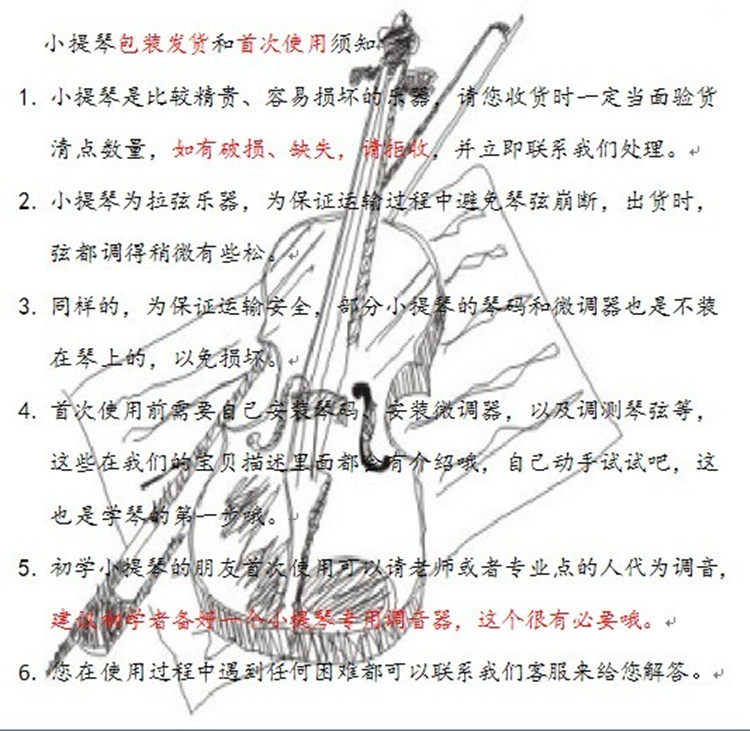 小提琴包装发货和首次使用须知
1. 小提琴是比较精贵、容易损坏的乐器，请您收货时一定当面验货
清点数量，如有破损、缺失，请拒收，并立即联系我们处理。
2. 小提琴为拉弦乐器，为保证运输过程中避免琴弦崩断，出货时，
弦都调得稍微有些松。
3. 同样的，为保证运输安全，部分小提琴的琴码和微调器也是不装
在琴上的，以免损坏。
4. 首次使用前需要自己安装琴码、安装微调器，以及调测琴弦等，
这些在我们的宝贝描述里面都会有介绍哦，自己动手试试吧，这
也是学琴的第一步哦。
5. 初学小提琴的朋友首次使用可以请老师或者专业点的人代为调音，
建议初学者备好一个小提琴专用调音器，这个很有必要哦。
6. 您在使用过程中遇到任何困难都可以联系我们客服来给您解答。